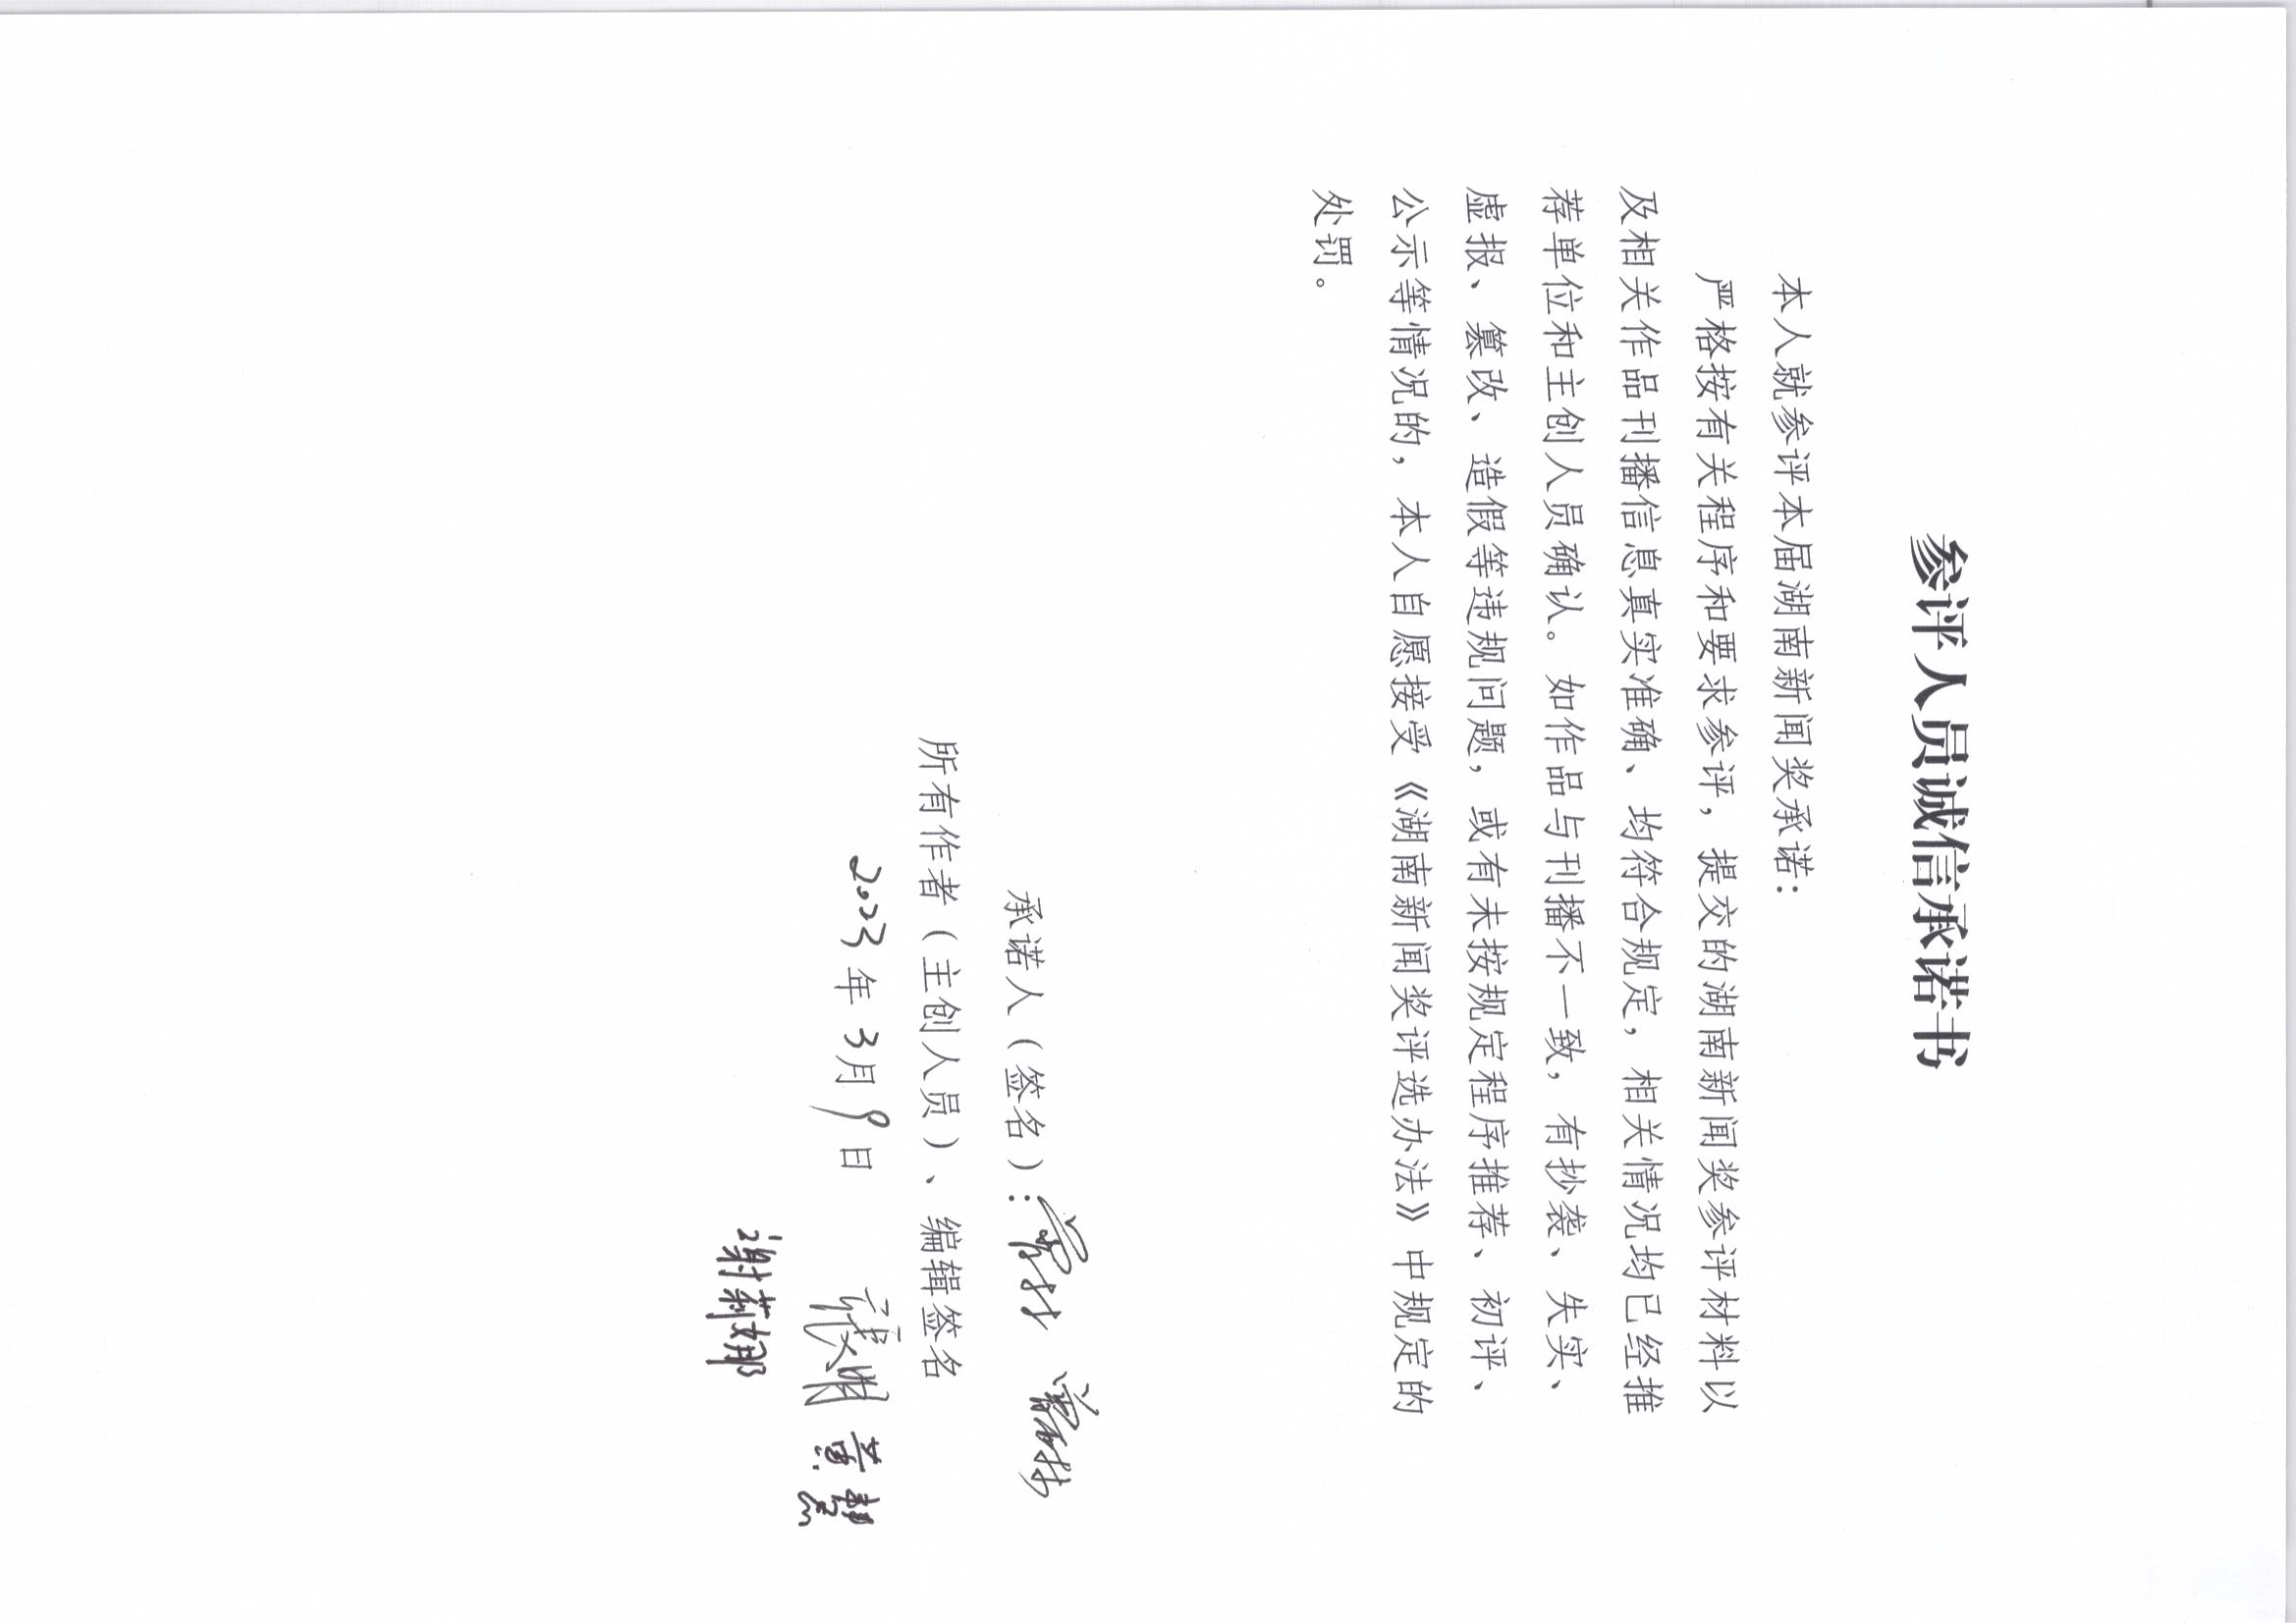 参评人员诚信承诺书
本人就参评本届湖南新闻奖承诺：
严格按有关程序和要求参评，提交的湖南新闻奖参评材料以
及相关作品刊播信息真实准确、均符合规定，相关情况均已经推
荐单位和主创人员确认。如作品与刊播不一致，有抄袭、失实、
虚报、篡改、造假等违规问题，或有未按规定程序推荐、初评、
公示等情况的，本人自愿接受《湖南新闻奖评选办法》中规定的
处罚。
承诺人（签名）：
所有作者（主创人员）、编辑签名
2023年3月9日
黄慧
谢莉娜